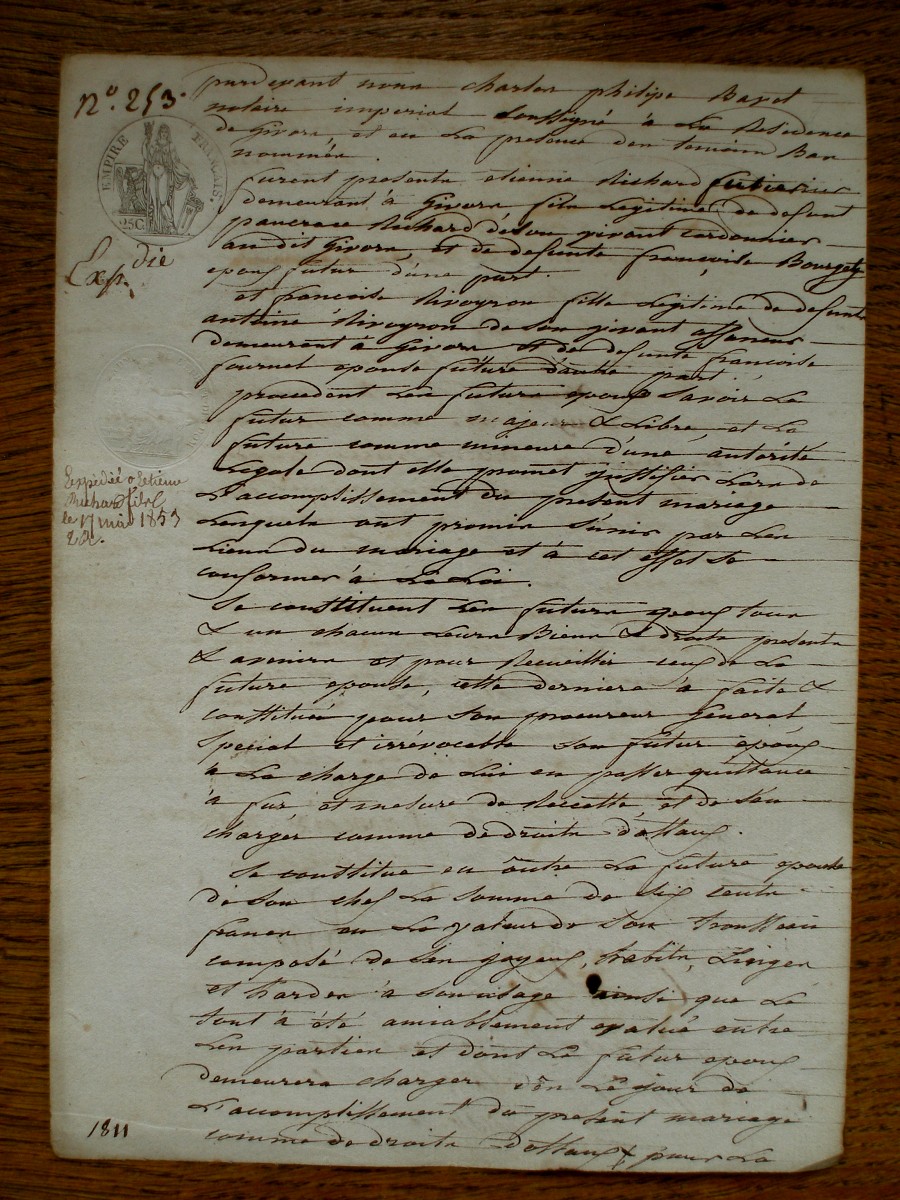 n° 253.
EMPIRE FRANÇAIS.
25C.
Expdié
pardevant nous charles philipe Bayet
notaire imperial soussigné à La Residence
de Givors, et en La presence des temoins Bas
nommés.
furent presents etienne Richard
demeurant à Givors fils Legitime de defunt
pancrace Richard de son vivant cordonnier
au dit Givors, et de defunte françoise Bourget
epoux futur d'une part.
et françoise Rivoyron fille Legitime de defunt
antoine Rivoyron de son vivant affaneur
demeurant à Givors et de defunte francoise
fournel epouse future d'autre part
procedent Les futurs epoux savoir Le
futur comme majeur & Libre, et La
future comme mineure d'une autorité
Legale dont elle promet justifier Lors de
L'accomplissement du present mariage
Lesquels ont promis s'unir par Les
Liens du mariage et à cet effet se
conformer à La Loi.
se constituent Les futurs epoux tous
& un chacun Leurs Biens & droits presents
& avenirs et pour Recueillir ceux de La
future epouse, cette derniere à faite &
constitué pour son procureur General
special et irrévocable son futur epoux
à La charge de Lui en passer quittance
à fur et mesure de Recette et de s'en
chargér comme de droits dotaux.
se constitue en outre La future epouse
de son chef La somme de six cents
francs en La valeur de son trousseau
composé de ses joyaux, habits, Linges
et hardes à son usage ainsi que Le
tout à été amiablement evalué entre
Les parties et dont Le futur epoux
demeurera charger dès Le jour de
L'accomplissement du present mariage
comme de droits dotaux & pour La
Expédiée a Etienne
Richard
le 17 mai 1853
1811